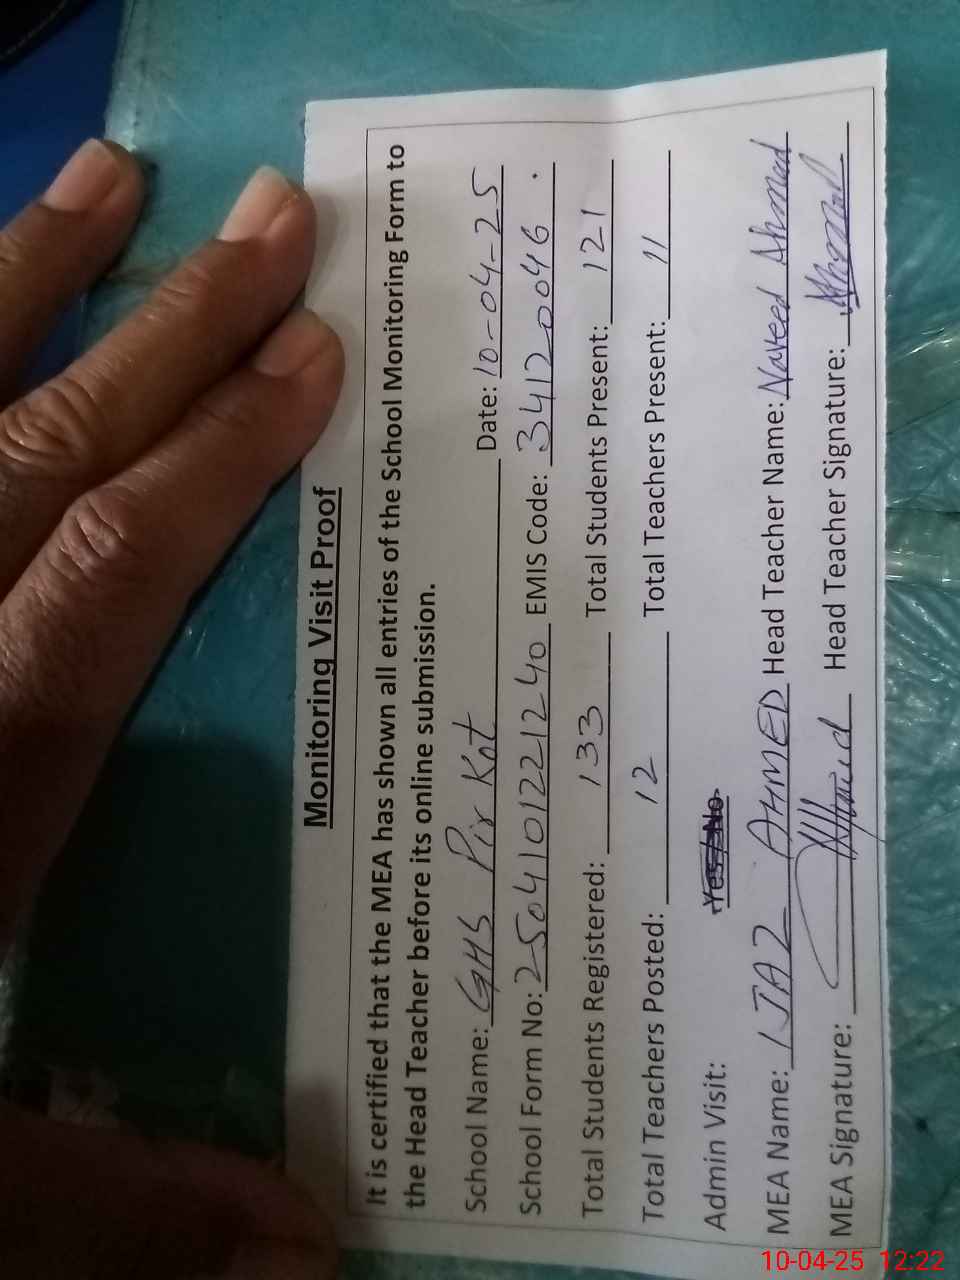 Monitoring Visit Proof
It is certified that the MEA has shown all entries of the School Monitoring Form to
the Head Teacher before its online submission.
School Name: GHS Pir Kot Date: 10-04-25
School Form No: 2504101221240 EMIS Code: 34120046 .
Total Students Registered: 133 Total Students Present: 121
Total Teachers Posted: 12 Total Teachers Present: 11
Admin Visit: Yes / No
MEA Name: IJAZ AHMED Head Teacher Name: Naveed Ahmad
MEA Signature: Head Teacher Signature:
10-04-25 12:22